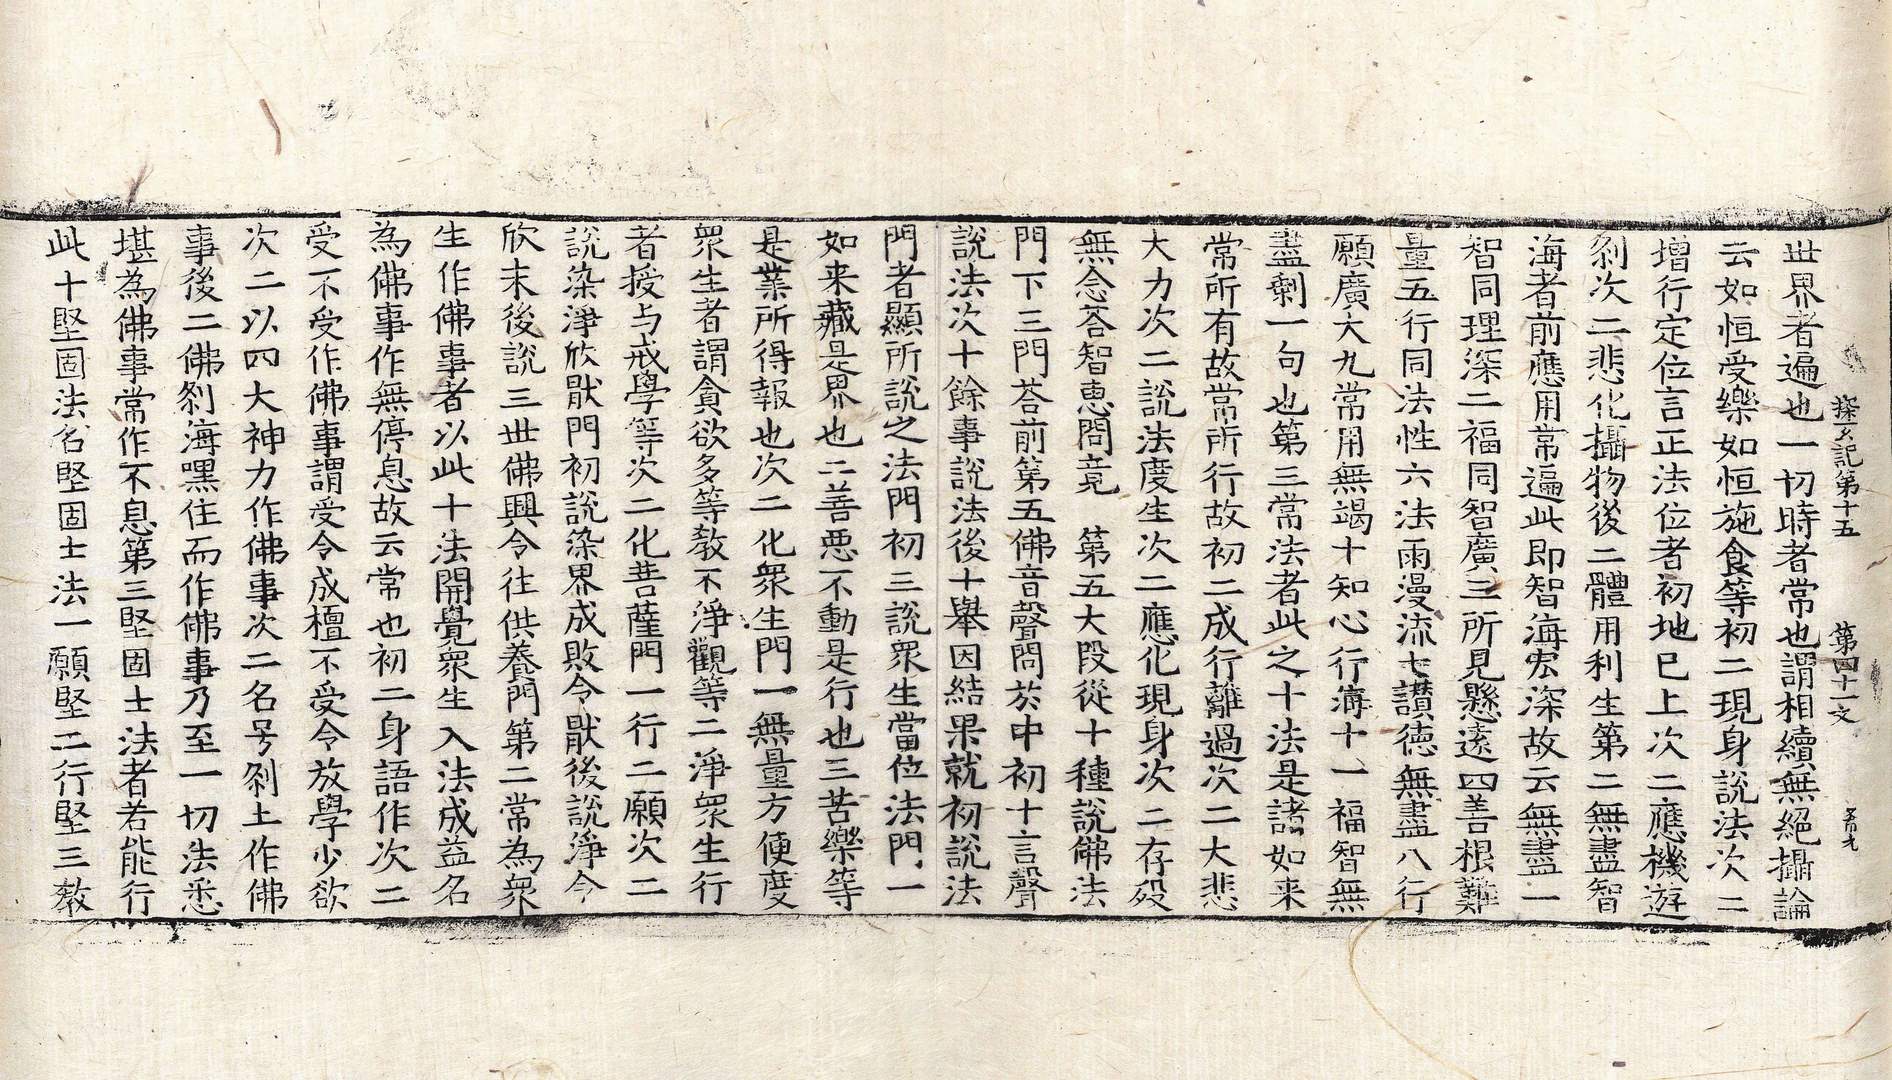 探玄記第十五 第四十一丈
世界者遍也一切時者常也謂相續無絕攝論
云如恒受樂如恒施食等初二現身說法次二
增行定位言正法位者初地已上次二應機遊
刹次二悲化攝物後二體用利生第二無盡智
海者前應用常遍此即智海宏深故云無盡一
智同理深二福同智廣三所見懸遠四善根難
量五行同法性六法雨漫流七讃德無盡八行
願廣大九常用無竭十知心行海十一福智無
盡剩一句也第三常法者此之十法是諸如来
常所有故常所行故初二成行離過次二大悲
大力次二說法度生次二應化現身次二存歿
無念荅智恵問竟 第五大段從十種說佛法
門下三門荅前第五佛音聲問於中初十言聲
說法次十餘事說法後十舉因結果就初說法
門者顯所說之法門初三說衆生當位法門一
如来藏是界也二善悪不動是行也三苦樂等
是業所得報也次二化衆生門一無量方便度
衆生者謂貪欲多等教不淨觀等二淨衆生行
者授与戒學等次二化菩薩門一行二願次二
說染淨欣猒門初說染界成敗令猒後說淨令
欣末後說三世佛興令往供養門第二常為衆
生作佛事者以此十法開覺衆生入法成益名
為佛事作無停息故云常也初二身語作次二
受不受作佛事謂受令成檀不受令放學少欲
次二以四大神力作佛事次二名号刹土作佛
事後二佛刹海嘿住而作佛事乃至一切法悉
堪為佛事常作不息第三堅固士法者若能行
此十堅固法名堅固士法一願堅二行堅三教